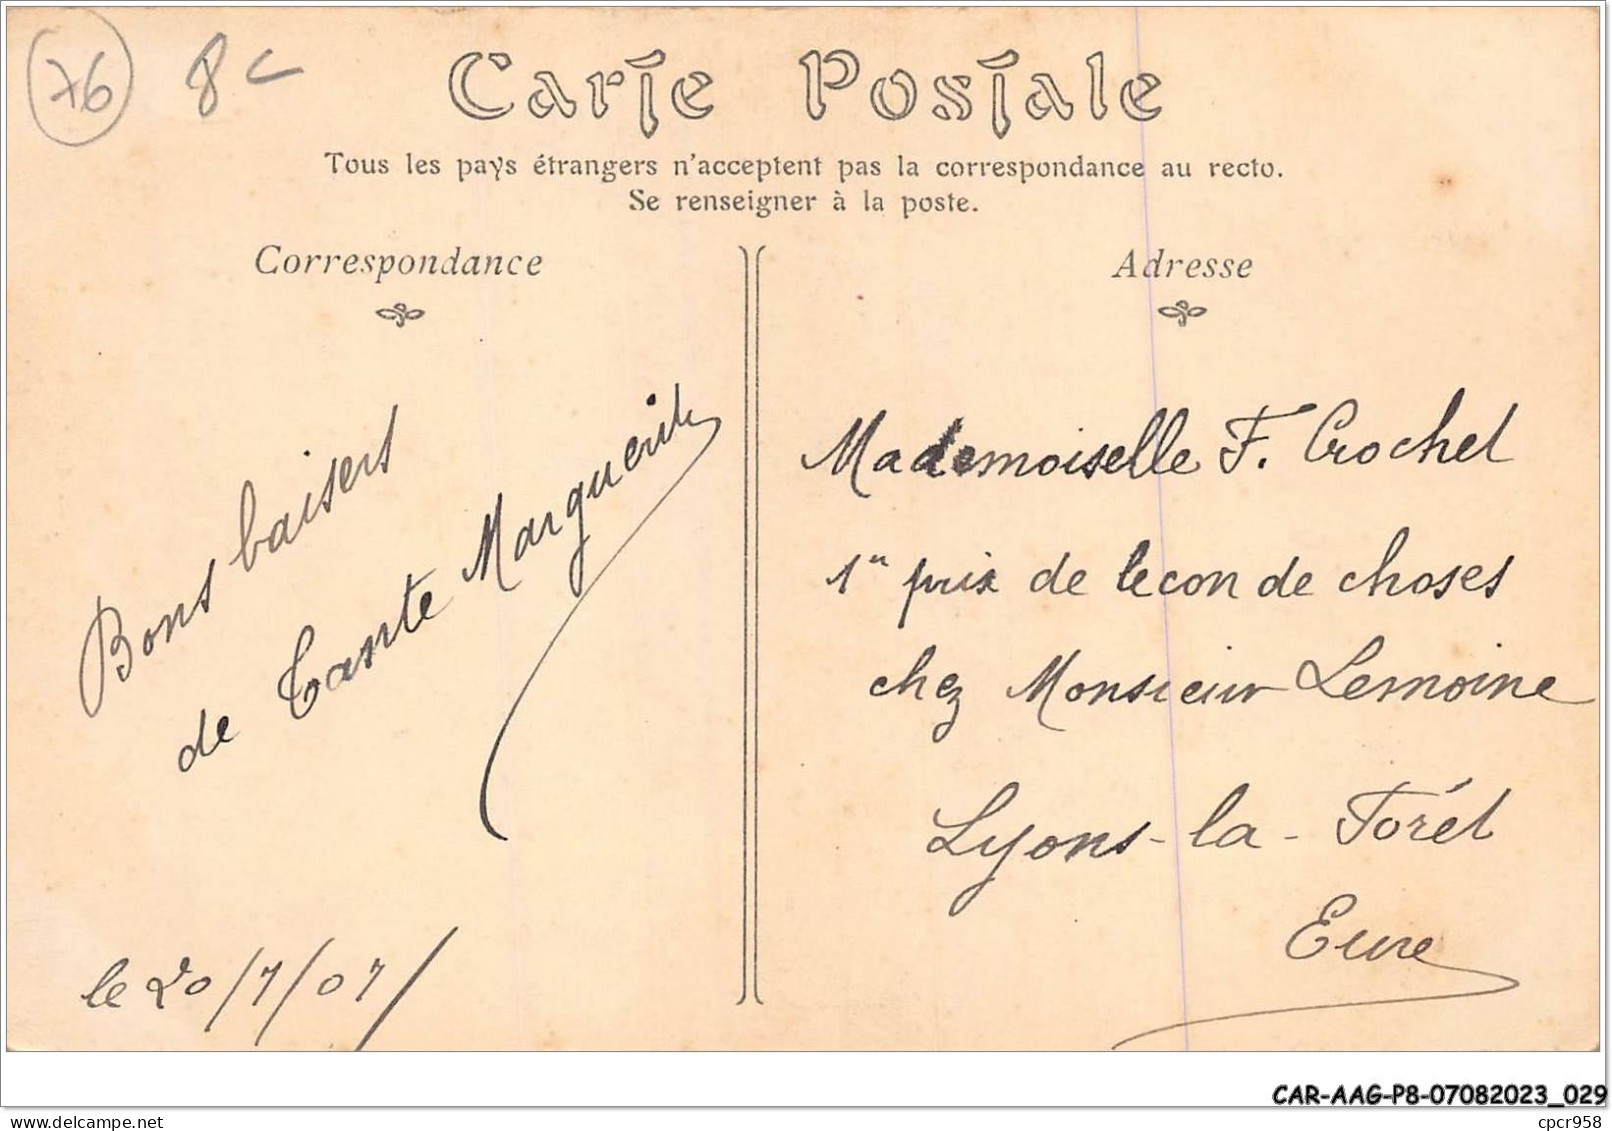 76 8c
Carte Postale
Tous les pays étrangers n'acceptent pas la correspondance au recto.
Se renseigner à la poste.
Correspondance
Bons baisers
de Tante Marguerite
le 20/7/07/
Adresse
Mademoiselle F. Crochet
1er prix de lecon de choses
chez Monsieur Lemoine
Lyons-la-Forét
Eure
CAR-AAG-P8-07082023_029
cpcr958